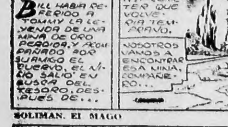 BILL HABIA RE-
FERIDO A
TOMMY LA LE-
YENDA DE UNA
MINA DE ORO
PERDIDA, Y ACOM
PAÑADO POR
SU AMIGO EL
CUERVO, EL NI-
ÑO SALIO EN
BUSCA DEL
TESORO. DES-
PUES DE...
TER QUE
VOLVE-
RIA TEM-
PRANO.
NOSOTROS
VAMOS A
ENCONTRAR
ESA MINA,
COMPAÑE-
RO...
SOLIMAN, EL MAGO